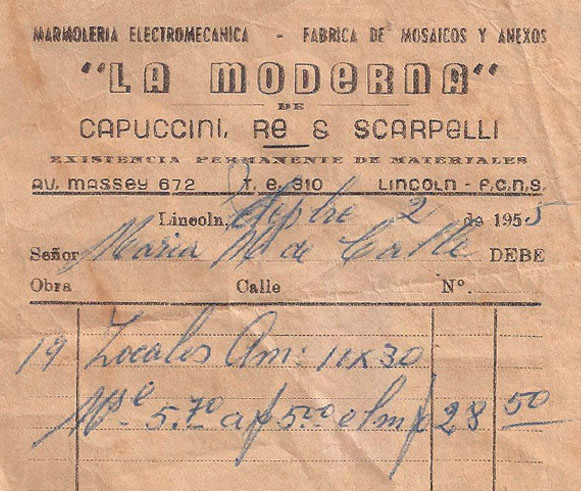 MARMOLERIA ELECTROMECANICA - FABRICA DE MOSAICOS Y ANEXOS
"LA MODERNA"
DE
CAPUCCINI, RE & SCARPELLI
EXISTENCIA PERMANENTE DE MATERIALES
AV. MASSEY 672 T. E. 310 LINCOLN - F.C.N.S.
Lincoln, Sepbre 2 de 1955
Señor Maria M. de Calle DEBE
Obra Calle Nº
19 Zocalos Am: 11x30
5.70 a $ 5.00 el m $ 28 50